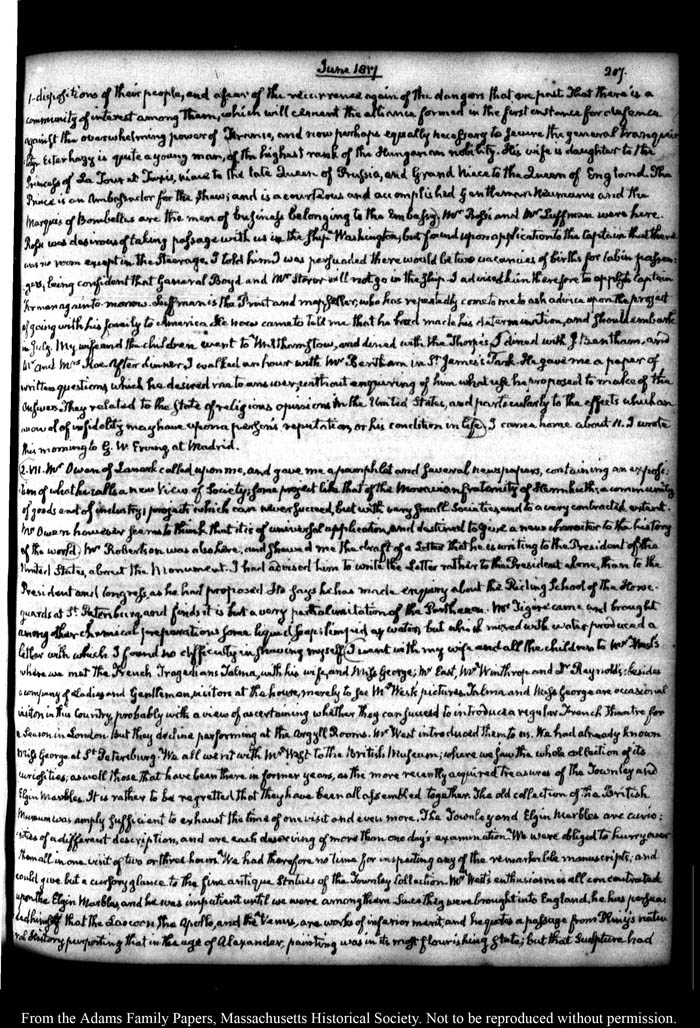 June 1817
207.
1. dispositions of their people, and a fear of the recurrence again of the dangers that are past. That there is a
community of interest among them, which will cement the alliance formed in the first instance for defence
against the overwhelming power of France, and now perhaps equally necessary to secure the general tranquil-
lity. Esterhazy is quite a young man, of the highest rank of the Hungarian nobility. His wife is daughter to the
Princess of La Tour at Taxis, niece to the late Queen of Prussia, and Grand Niece to the Queen of England. The
Prince is an Ambassador for the Shew; and is a courteous and accomplished Gentleman. Neumann and the
Marquis of Bombelles are the men of business belonging to the Embassy. Mr Rossi and Mr Luffman were here.
Rossi was desirous of taking passage with us in the Ship Washington, but found upon application to the Captain that there
was no room except in the Steerage. I told him I was persuaded there would be two vacancies of births for Cabin passen-
gers, being confident that General Boyd and Mr Storer will not go in the Ship. I advised him therefore to apply to Captain
Forman again to-morrow. Luffman is the Print and map seller, who has repeatedly come to me to ask advice upon the project
of going with his family to America. He now came to tell me that he had made his determination, and should embark
in July. My wife and the children went to Walthamstow, and dined with the Thorps. I dined with J. Bentham, and
Mr and Mrs Koe. After dinner, I walked an hour with Mr Bentham in St. James's Park. He gave me a paper of
written questions which he desired me to answer, without enquiring of him what use he proposed to make of the
answers. They related to the State of religious opinions in the United States, and particularly to the effects which an
avowal of infidelity may have upon a person's reputation, or his condition in life. I came home about 11. I wrote
this morning to G. W. Erving at Madrid.
2. VII. Mr Owen of Lanark called upon me, and gave me a pamphlet and several newspapers, containing an exposi-
tion of what he calls a new View of Society; some project like that of the Moravian fraternity of Hernhuth; a community
of goods and of industry; projects which can never succeed, but with very small Societies, and to a very contracted extent.
Mr Owen however seems to think that it is of universal application, and destined to give a new character to the history
of the world. Mr Robertson was also here, and shewed me the draft of a Letter that he is writing to the President of the
United States, about the Monument. I had advised him to write the Letter rather to the President alone, than to the
President and Congress, as he had proposed. He says he has made enquiry about the Riding School of the Horse-
guards at St. Petersburg, and finds it is but a very partial imitation of the Parthenon. Mr Tigere came and brought
among other chemical preparations some liquid soap, limpid as water, but which mixed with water produced a
lather with which I found no difficulty in shaving myself. I went with my wife and all the children to Mr West's
where we met the French Tragedians Talma, with his wife, and Miss George; Mr East, Mr Winthrop and Dr Reynolds: besides
a company of Ladies and Gentlemen, visitors at the house, merely to see Mr West's pictures. Talma and Miss George are occasional
visitors in this Country, probably with a view of ascertaining whether they can succeed to introduce a regular French Theatre for
a Season in London, but they decline performing at the Argyll Rooms. Mr West introduced them to us. We had already known
Miss George at St. Petersburg. We all went with Mr West to the British Museum; where we saw the whole collection of its
curiosities, as well those that have been there in former years, as the more recently acquired treasures of the Townley and
Elgin Marbles. It is rather to be regretted that they have been all assembled together. The old collection of the British
Museum was amply sufficient to exhaust the time of one visit and even more. The Townley and Elgin Marbles are curio-
sities of a different description, and are each deserving of more than one day's examination. We were obliged to hurry over
them all in one visit of two or three hours. We had therefore no time for inspecting any of the remarkable manuscripts, and
could give but a cursory glance to the fine antique Statues of the Townley Collection. Mr West's enthusiasm is all concentrated
upon the Elgin Marbles, and he was impatient until we were among them. Since they were brought into England, he has persua-
ded himself that the Laocoon, the Apollo, and the Venus, are works of inferior merit, and he quotes a passage from Pliny's natu-
ral History, purporting that in the age of Alexander, painting was in its most flourishing State; but that Sculpture had
From the Adams Family Papers, Massachusetts Historical Society. Not to be reproduced without permission.